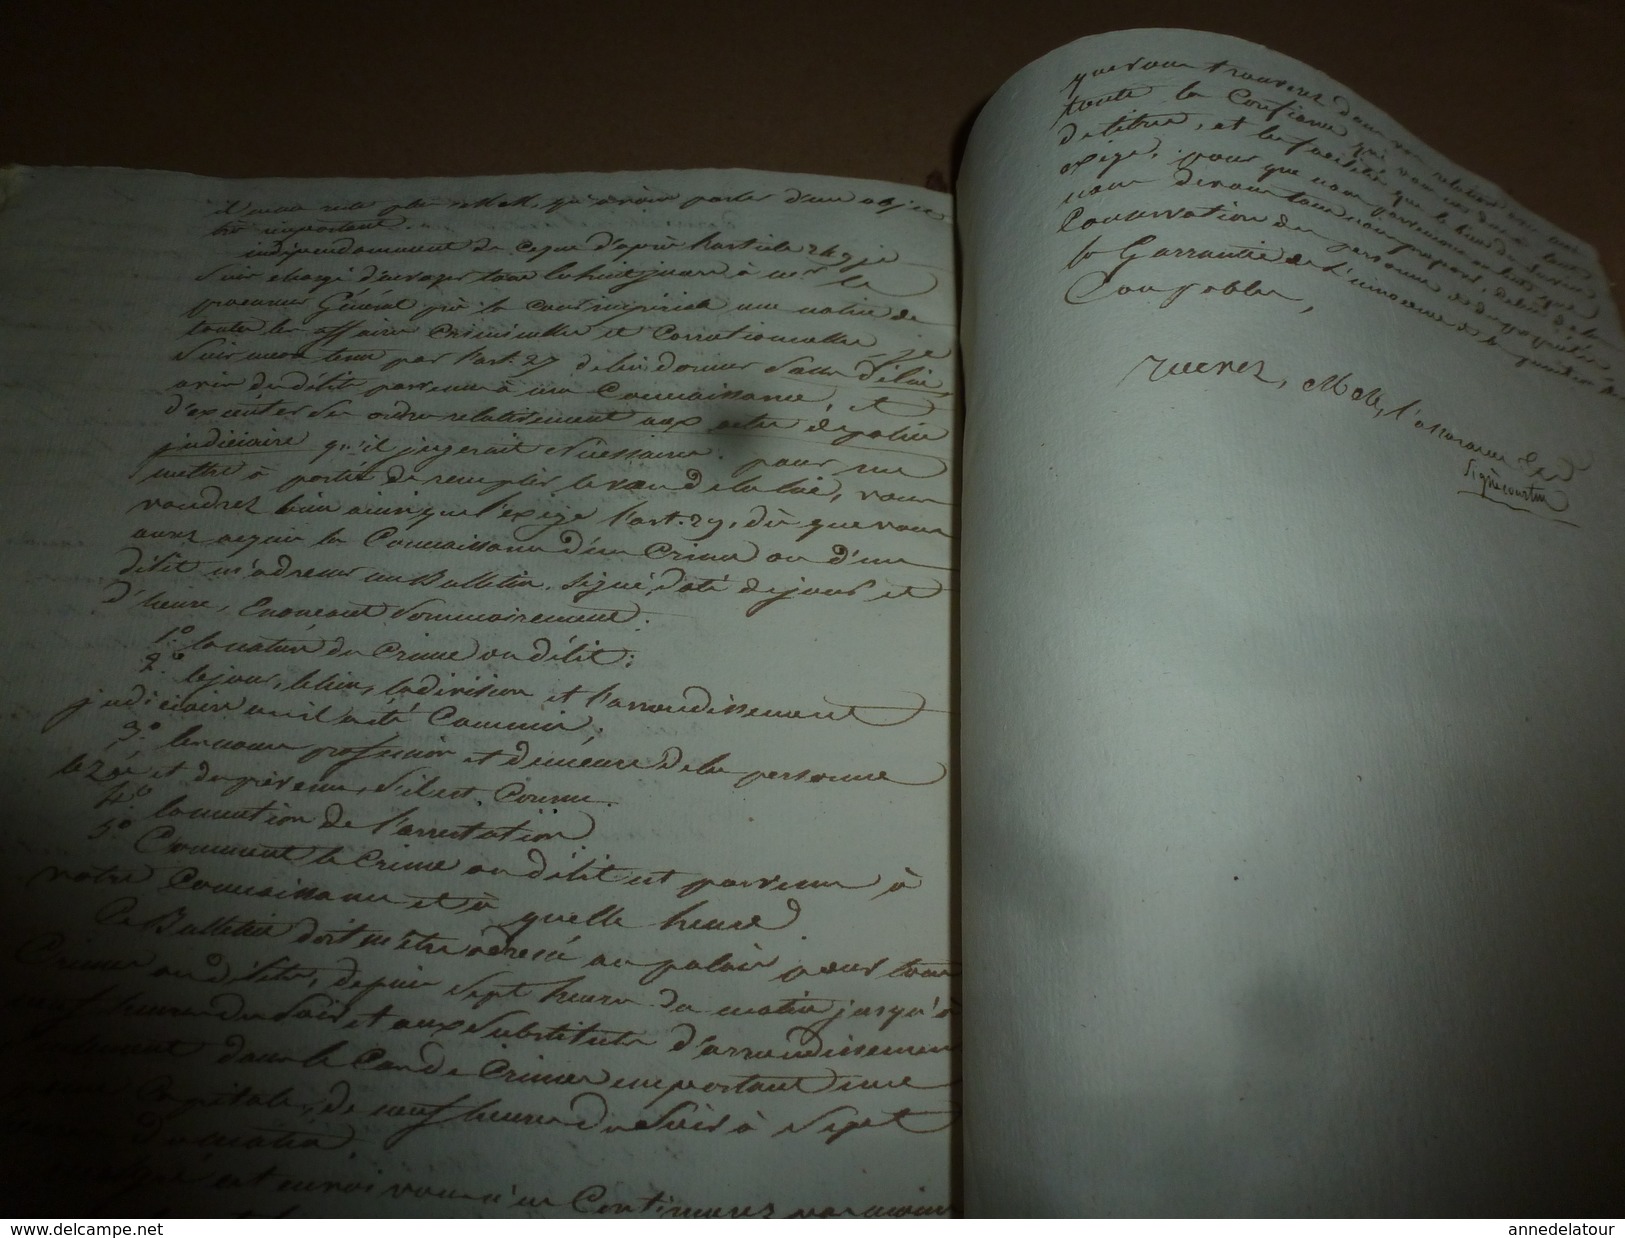 il me reste plus MM, qu'à vous parler d'un objet
très important.
indépendamment de ce que d'après l'article 249 je
suis chargé d'envoyer tous les huit jours à mr le
procureur Général près la Cour impériale une notice de
toutes les affaires Criminelles et Correctionnelles, je
suis tenu par l'art. 27 de lui donner Sans délai
avis des délits parvenus à ma Connaissance, et
d'exécuter ses ordres relativement aux actes de police
judiciaire qu'il jugerait nécessaire. pour me
mettre à portée de remplir le vœu de la loi, vous
voudrez bien ainsi que l'exige l'art. 29, dès que vous
aurez acquis la Connaissance d'un Crime ou d'un
délit m'adresser un Bulletin, signé, daté de jour et
d'heure, Enonçant Sommairement.
1.º la nature du Crime ou délit;
2.º le jour, le lieu, la division et l'arrondissement
judiciaire où il a été Commis;
3.º les noms profession et demeure de la personne
lezée et du prévenu, s'il est Connu.
4.º la mention de l'arrestation
5.º Comment le Crime ou délit est parvenu à
votre Connaissance et à quelle heure
Ce Bulletin doit m'être adressé au palais pour tous
Crimes ou délits, depuis sept heures du matin jusqu'à
neuf heures du Soir et aux Substituts d'arrondissement
Seulement dans le Cas de Crimes important une
peine Capitale, de neuf heures du Soir à Sept
heures du matin.
malgré cet envoi vous n'en Continuerez pas moins
que vous trouverez dans vos relations avec moi
toute la Confiance qui vous est due à tant
de titres, et les facilités que le bien du Service
exige, pour que nous parvenions au but que
nous devons tous nous proposer, celui de la
Conservation des personnes et des propriétés
la Garrantie de l'innocence et la punition des
Coupables,
recevez, MM, l'assurance &a
Signé courtin
www.delcampe.net
annedelatour